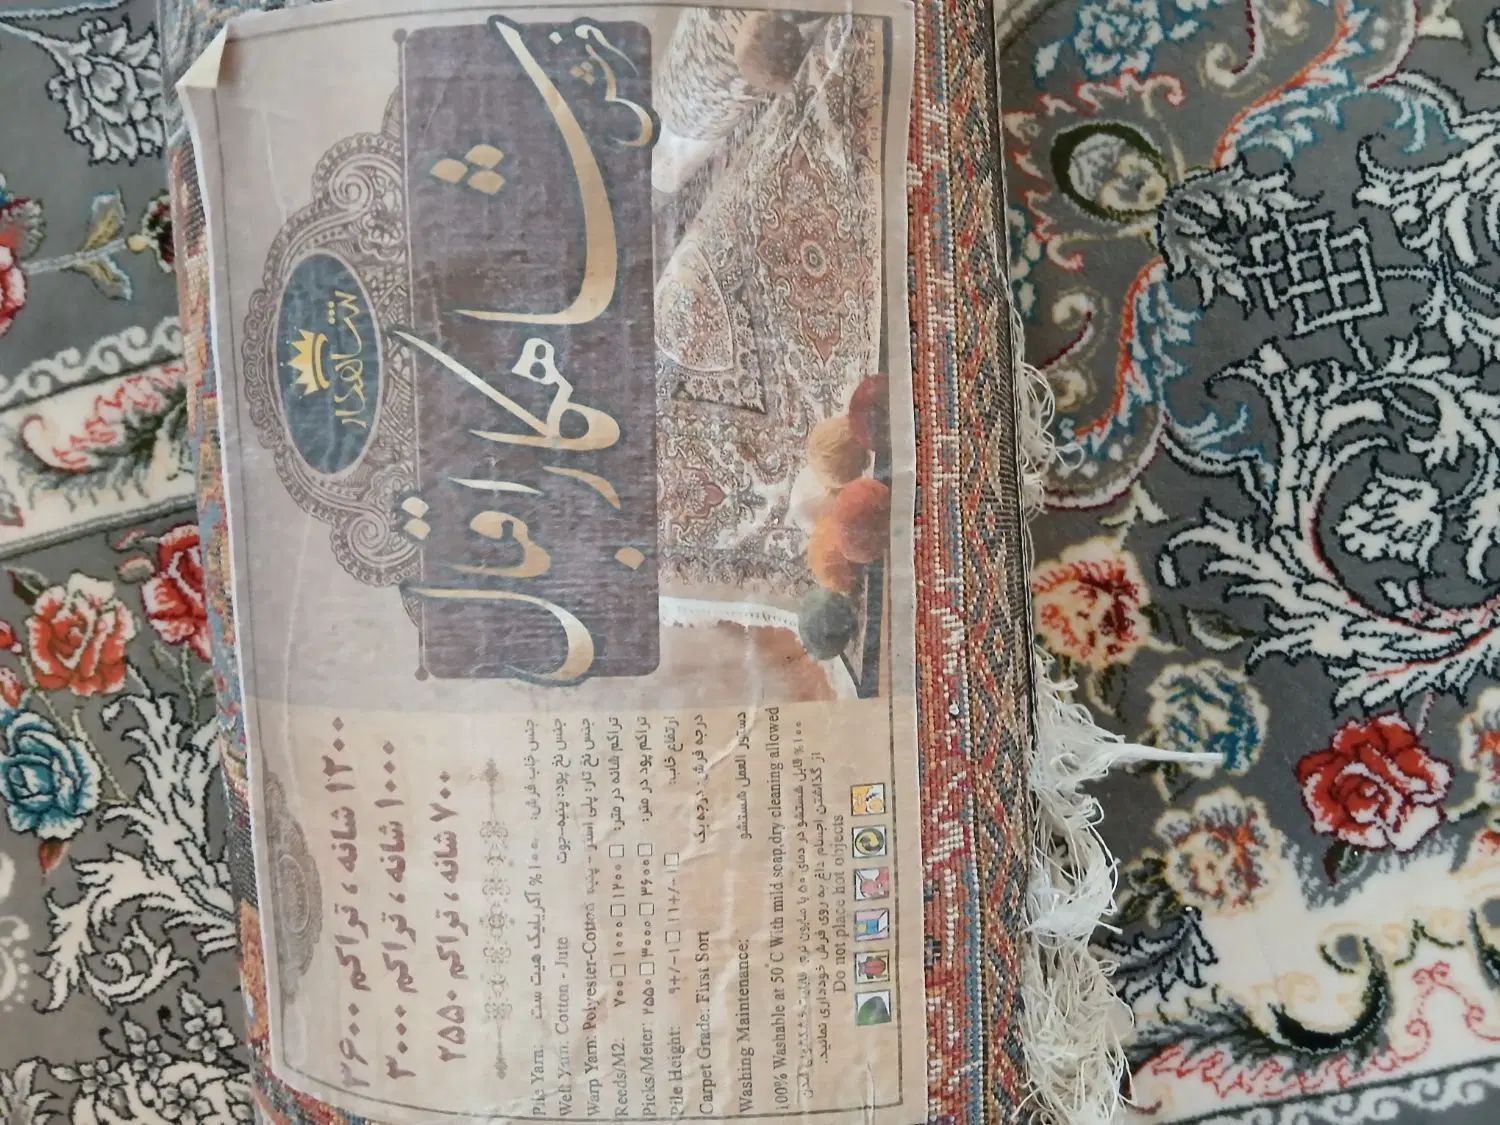 شاهکار
فرش
شاهکار اقبال
۱۲۰۰ شانه ، تراکم ۳۶۰۰
۱۰۰۰ شانه ، تراکم ۳۰۰۰
۷۰۰ شانه ، تراکم ۲۵۵۰
Pile Yarn: جنس خاب فرش: ۱۰۰% آکریلیک هیت ست
Weft Yarn: Cotton - Jute جنس نخ پود: پنبه-جوت
Warp Yarn: Polyester-Cotton جنس نخ تار: پلی استر - پنبه
Reeds/M2: ۷۰۰ □ ۱۰۰۰ □ ۱۲۰۰ □ تراکم شانه در متر:
Picks/Meter: ۲۵۵۰ □ ۳۰۰۰ □ ۳۶۰۰ □ تراکم پود در متر:
Pile Height: ۹+/-۱ □ ۱۱+/-۱ □ ارتفاع خاب:
Carpet Grade: First Sort درجه فرش: درجه یک
Washing Maintenance: دستور العمل شستشو
100% Washable at 50°C With mild soap,dry cleaning allowed
۱۰۰% قابل شستشو در دمای ۵۰ با صابون نرم
از گذاشتن اجسام داغ به روی فرش خودداری نمائید.
Do not place hot objects